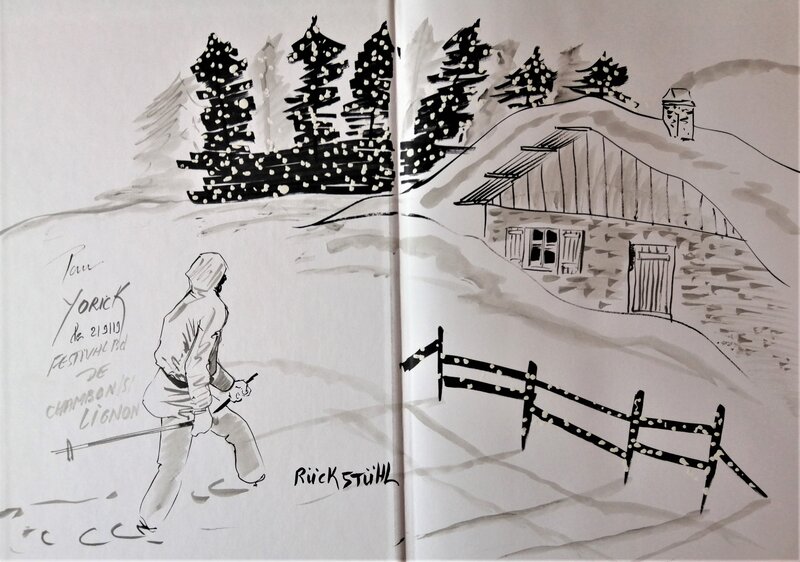 Pour
YORICK
le 21/9/19
FESTIVAL BD
DE
CHAMBON/S/
LIGNON
RÜCKSTÜHL